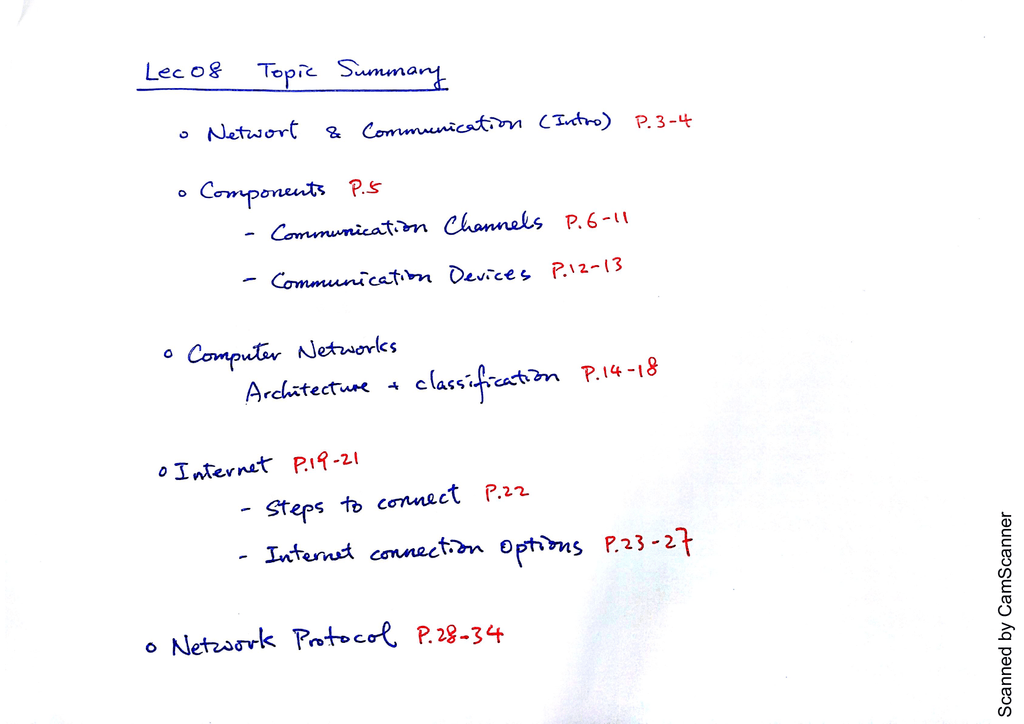 Lec 08 Topic Summary
o Network & Communication (Intro) P.3-4
o Components P.5
- Communication Channels P.6-11
- Communication Devices P.12-13
o Computer Networks
Architecture + classification P.14-18
o Internet P.19-21
- Steps to connect P.22
- Internet connection options P.23-27
o Network Protocol P.28-34
Scanned by CamScanner